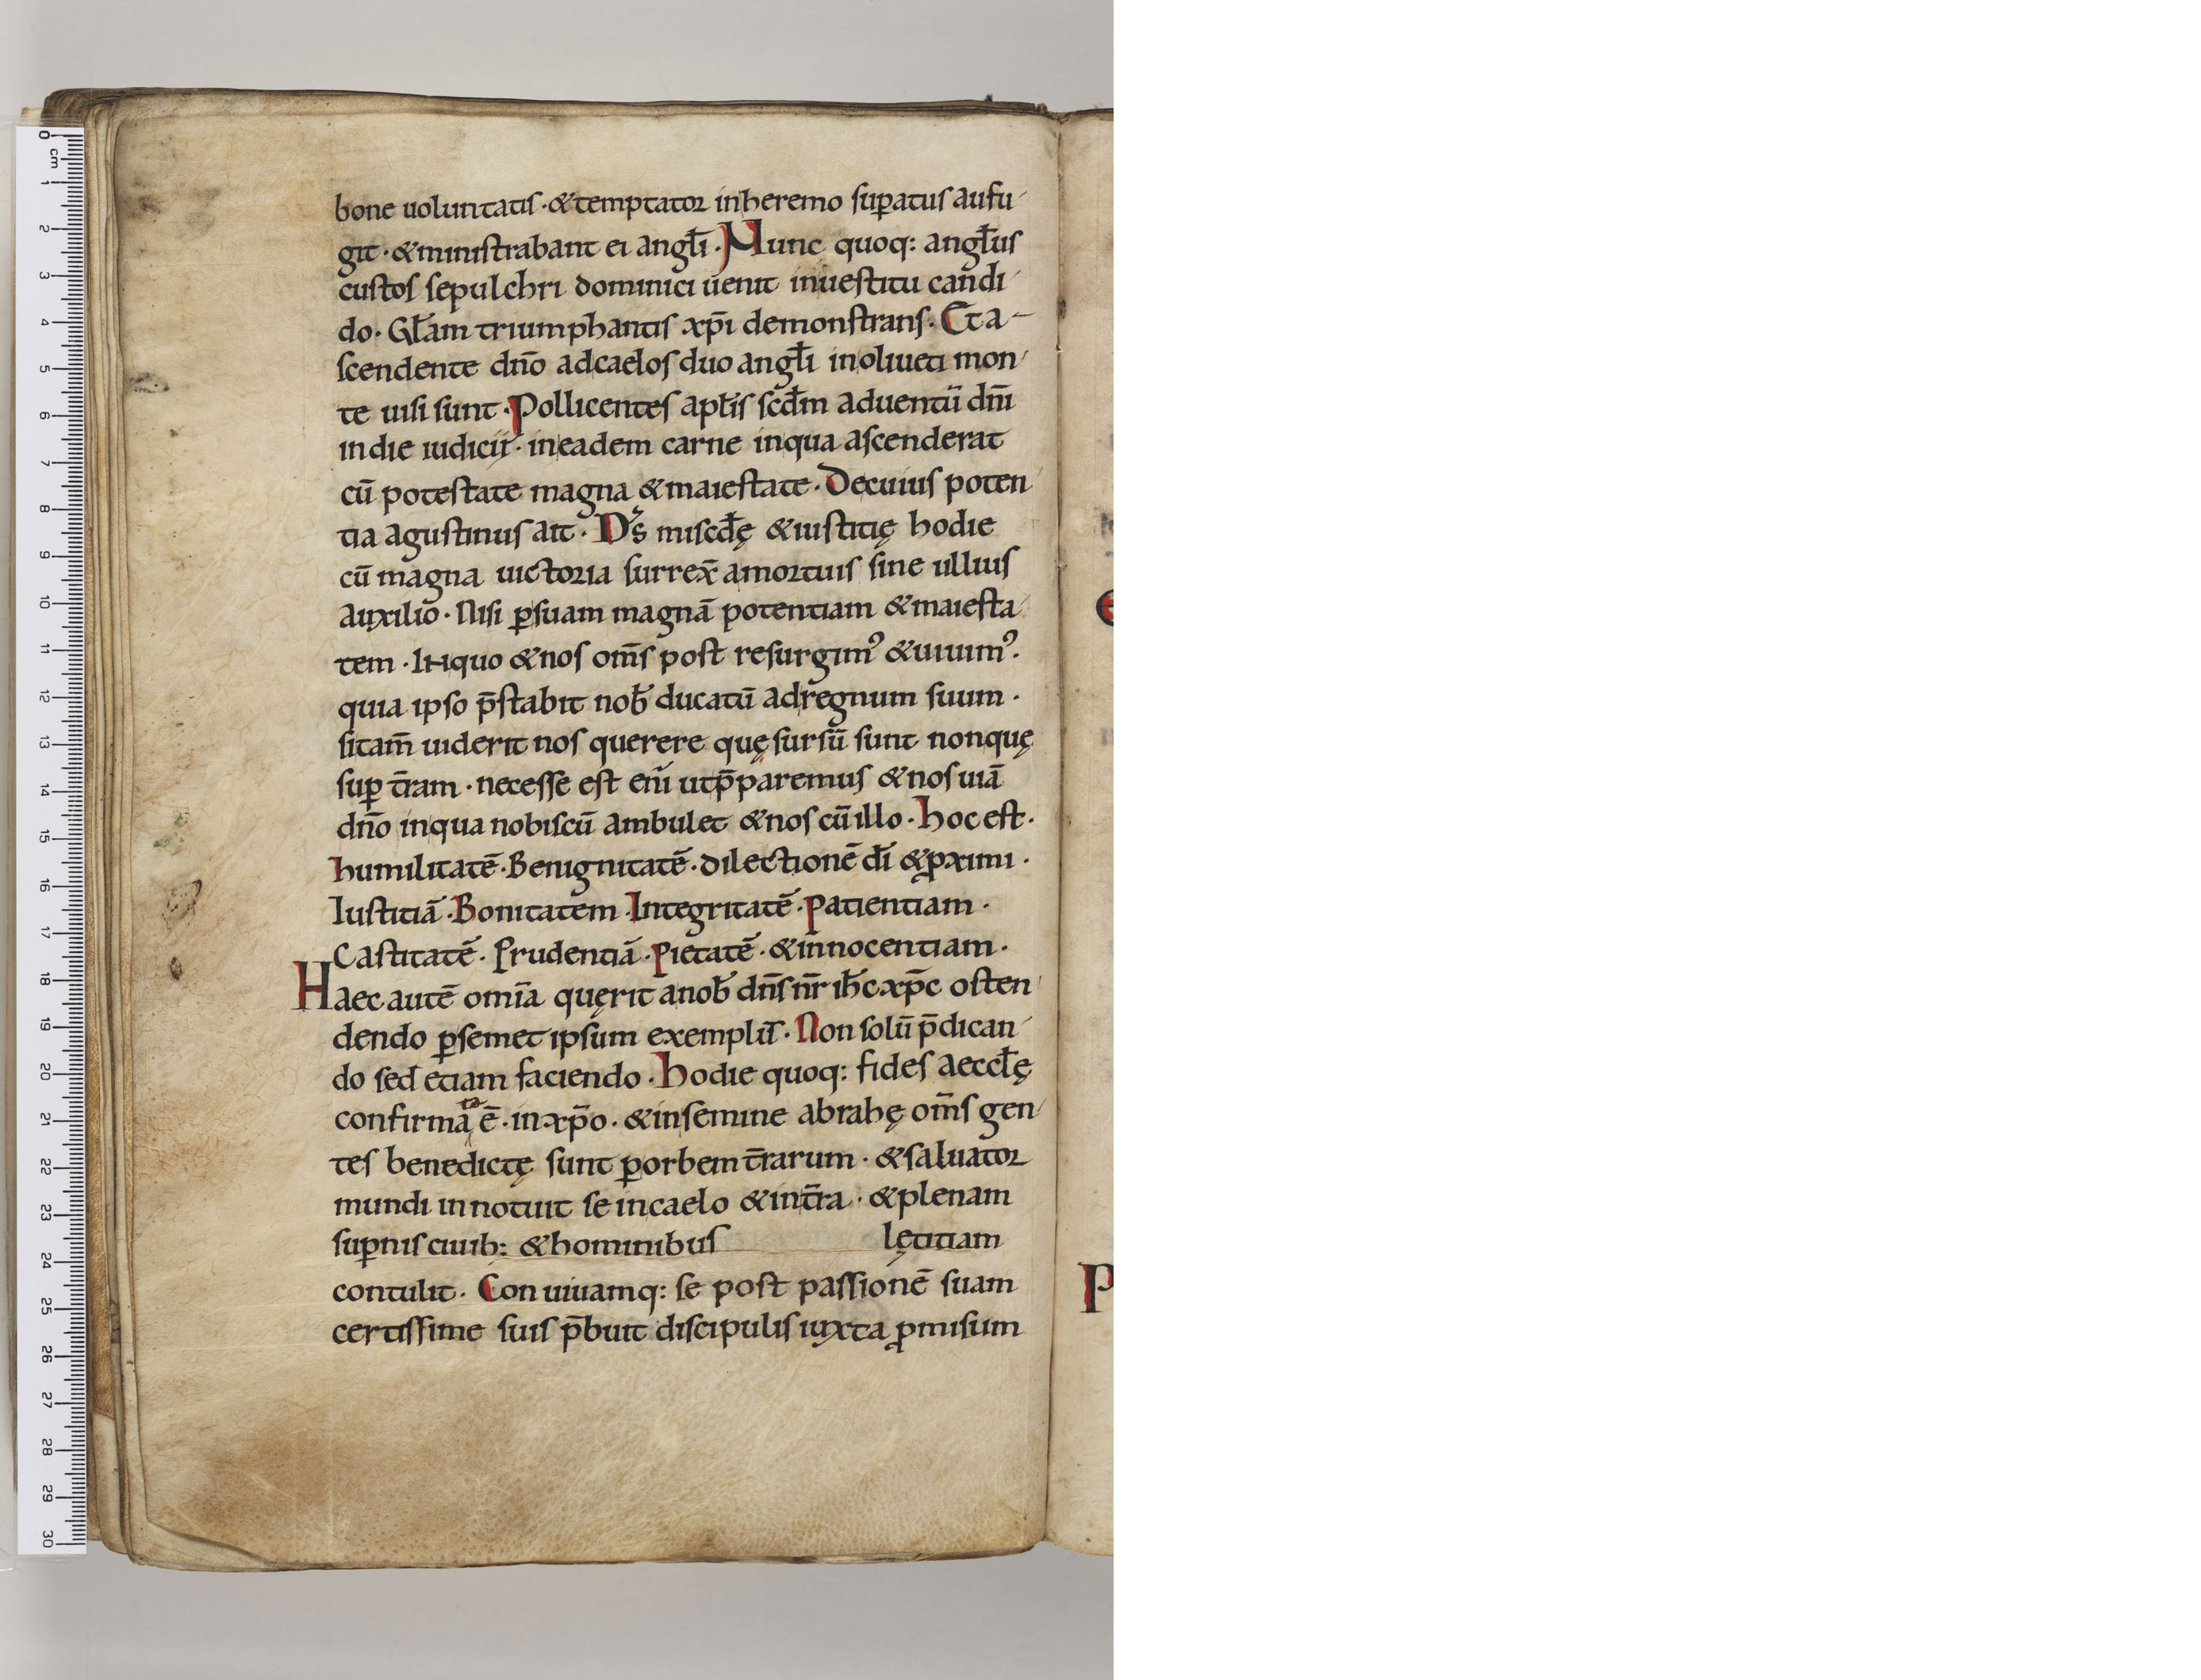 bone uoluntatis · & temptator inheremo suꝑatus aufu
git · & ministrabant ei angłi · Nunc quoq: angłus
custos sepulchri dominici uenit inuestitu candi
do · Głam triumphantis xp̄i demonstrans · Et a
scendente dn̄o adcaelos duo angłi inoliueti mon
te uisi sunt · Pollicentes apłis scđm aduentū dn̄i
indie iudicii · ineadem carne inqua ascenderat
cū potestate magna & maiestate · Decuius poten
tia agustinus ait · Ds̄ miscđę & iustitię hodie
cū magna uictoria surrex̄ amortuis sine ullius
auxilio · Nisi ꝑsuam magnā potentiam & maiesta
tem · Inquo & nos om̄s post resurgimꝰ & uiuimꝰ.
quia ipso p̄stabit nob̄ ducatū adregnum suum ·
sitam̄ uiderit nos querere quę sursū sunt nonquę
suꝑ t̄ram · necesse est eni̅ utp̄paremus & nos uiā
dn̄o inqua nobiscū ambulet & nos cū illo · hoc est ·
humilitatē · Benignitatē · dilectionē dī & ꝓximi ·
Iustitiā · Bonitatem Integritatē · patientiam ·
Castitatē · Prudentiā · pietatē · & innocentiam ·
Haec autē omīa quęrit anob̄ dn̄s nr̄ ih̄c xp̄c osten
dendo ꝑsemet ipsum exemplū · Non solū p̄dican
do sed etiam faciendo · hodie quoq: fides aeccłę
confirmata ē · inxp̄o · & insemine abrahę om̄s gen
tes benedictę sunt ꝑorbem t̄rarum · & saluator
mundi innotuit se incaelo & int̄ra · & plenam
suꝑnis ciuib: & hominibus lętitiam
contulit · Con uiuamq: se post passionē suam
certissime suis p̄buit discipulis iuxta ꝓmisum
0 cm 1 2 3 4 5 6 7 8 9 10 11 12 13 14 15 16 17 18 19 20 21 22 23 24 25 26 27 28 29 30
e
P